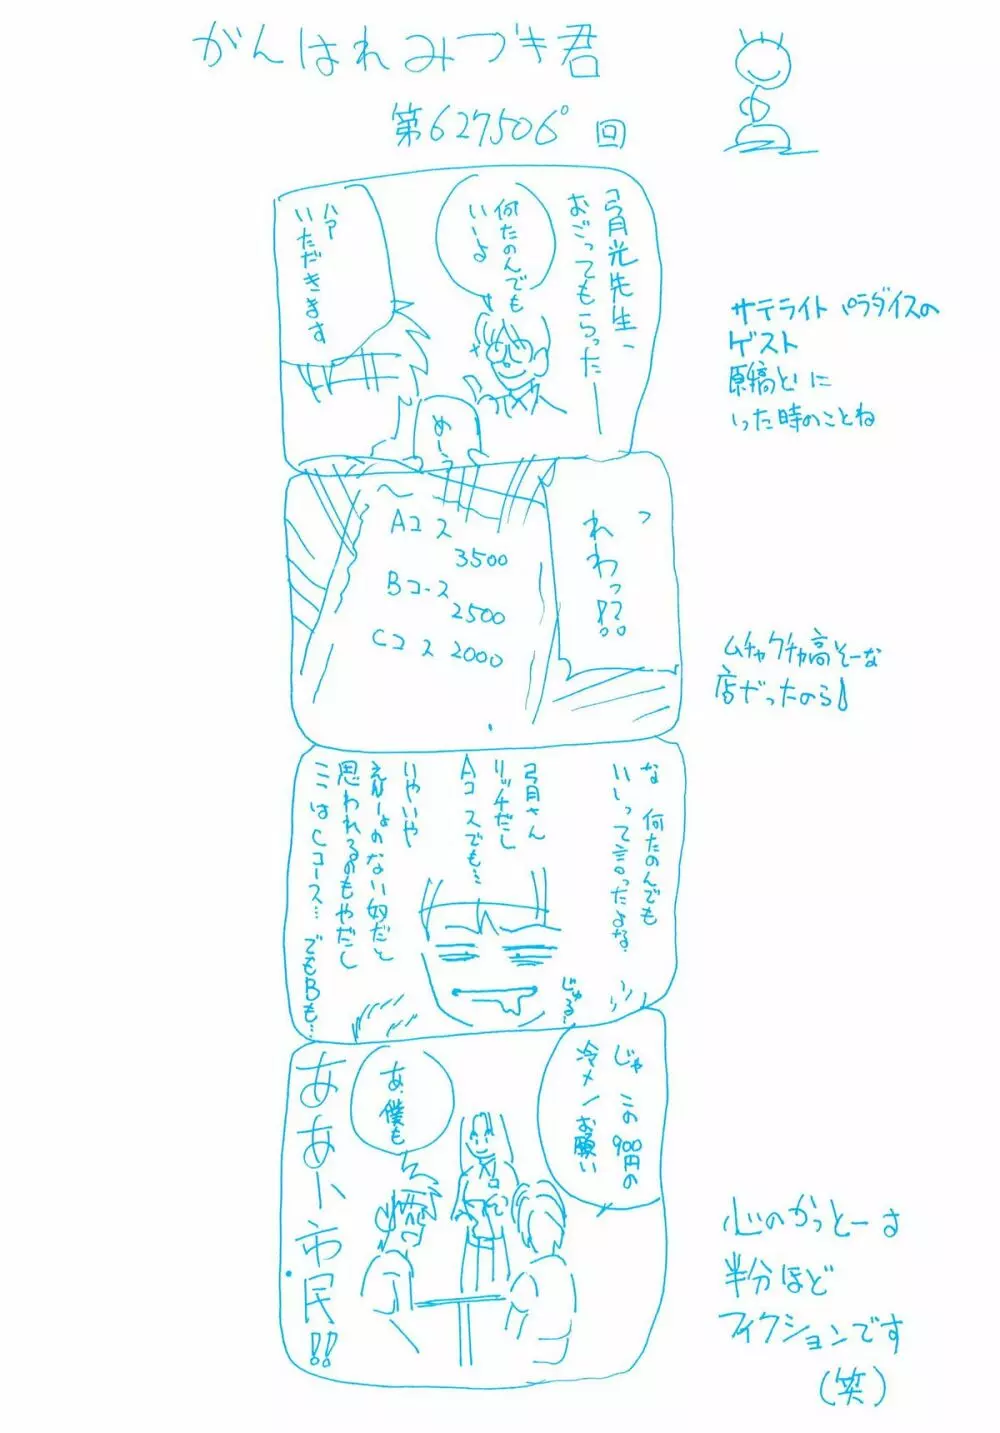 がんばれみづき君
第627506°回
弓月光先生、
おごってもらったー
何たのんでも
いーよ
ハァ
いただきます
めーう
サテライトパラダイスの
ゲスト
原稿とに
いった時のことね
っ
れわっ!?
Aコース
3500
Bコース
2500
Cコース 2000
ムチャクチャ高そーな
店だったのら
な 何たのんでも
いいって言ったよな
弓月さん
リッチだし
Aコースでも…
いやいや
えんりょのない奴だと
思われるのもやだし
ここはCコース… でもBも…
じゅる…
じゃ この900円の
冷メンお願い
あ、僕も
ああ、市民!!
心のかっとーは
半分ほど
フィクションです
(笑)